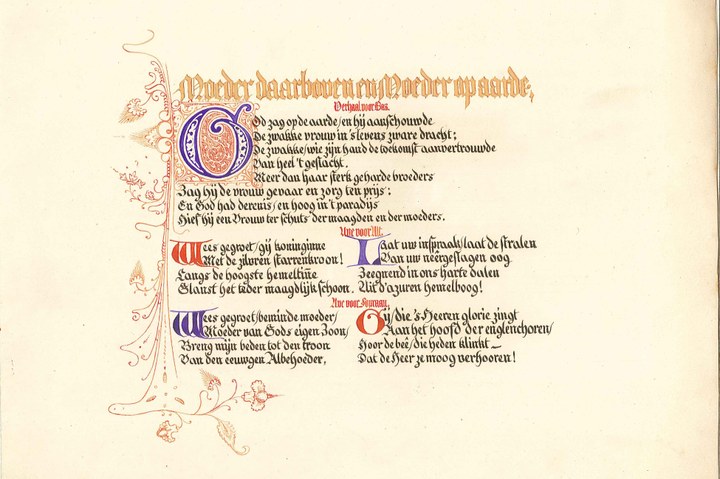 Moeder daarboven en Moeder op aarde,
Verhaal voor Bas.
God zag op de aarde/ en hij aanschouwde
De zwakke vrouw in 's levens zware dracht;
De zwakke/ wie zijn hand de toekomst aanvertrouwde
Van heel 't geslacht.
Meer dan haar sterk geharde broeders
Zag hij de vrouw gevaar en zorg ten prijs;
En God had derenis/ en hoog in 't paradijs
Hief hij een Vrouw ter schuts der maagden en der moeders.
Ave voor Alt.
Wees gegroet/ gij koninginne
Met de zilvren starrenkroon!
Langs de hoogste hemeltinne
Glanst het teder maagdlijk schoon.
Laat uw inspraak/ laat de stralen
Van uw neêrgeslagen oog
Zeegnend in ons harte dalen
Uit d'azuren hemelboog!
Ave voor Sopraan.
Wees gegroet/ beminde moeder/
Moeder van Gods eigen Zoon/
Breng mijn beden tot den troon
Van den eeuwgen Albehoeder,
Gij/ die 's Heeren glorie zingt
Aan het hoofd der englenchoren/
Hoor de beê/ die heden klinkt —
Dat de Heer ze moog verhooren!